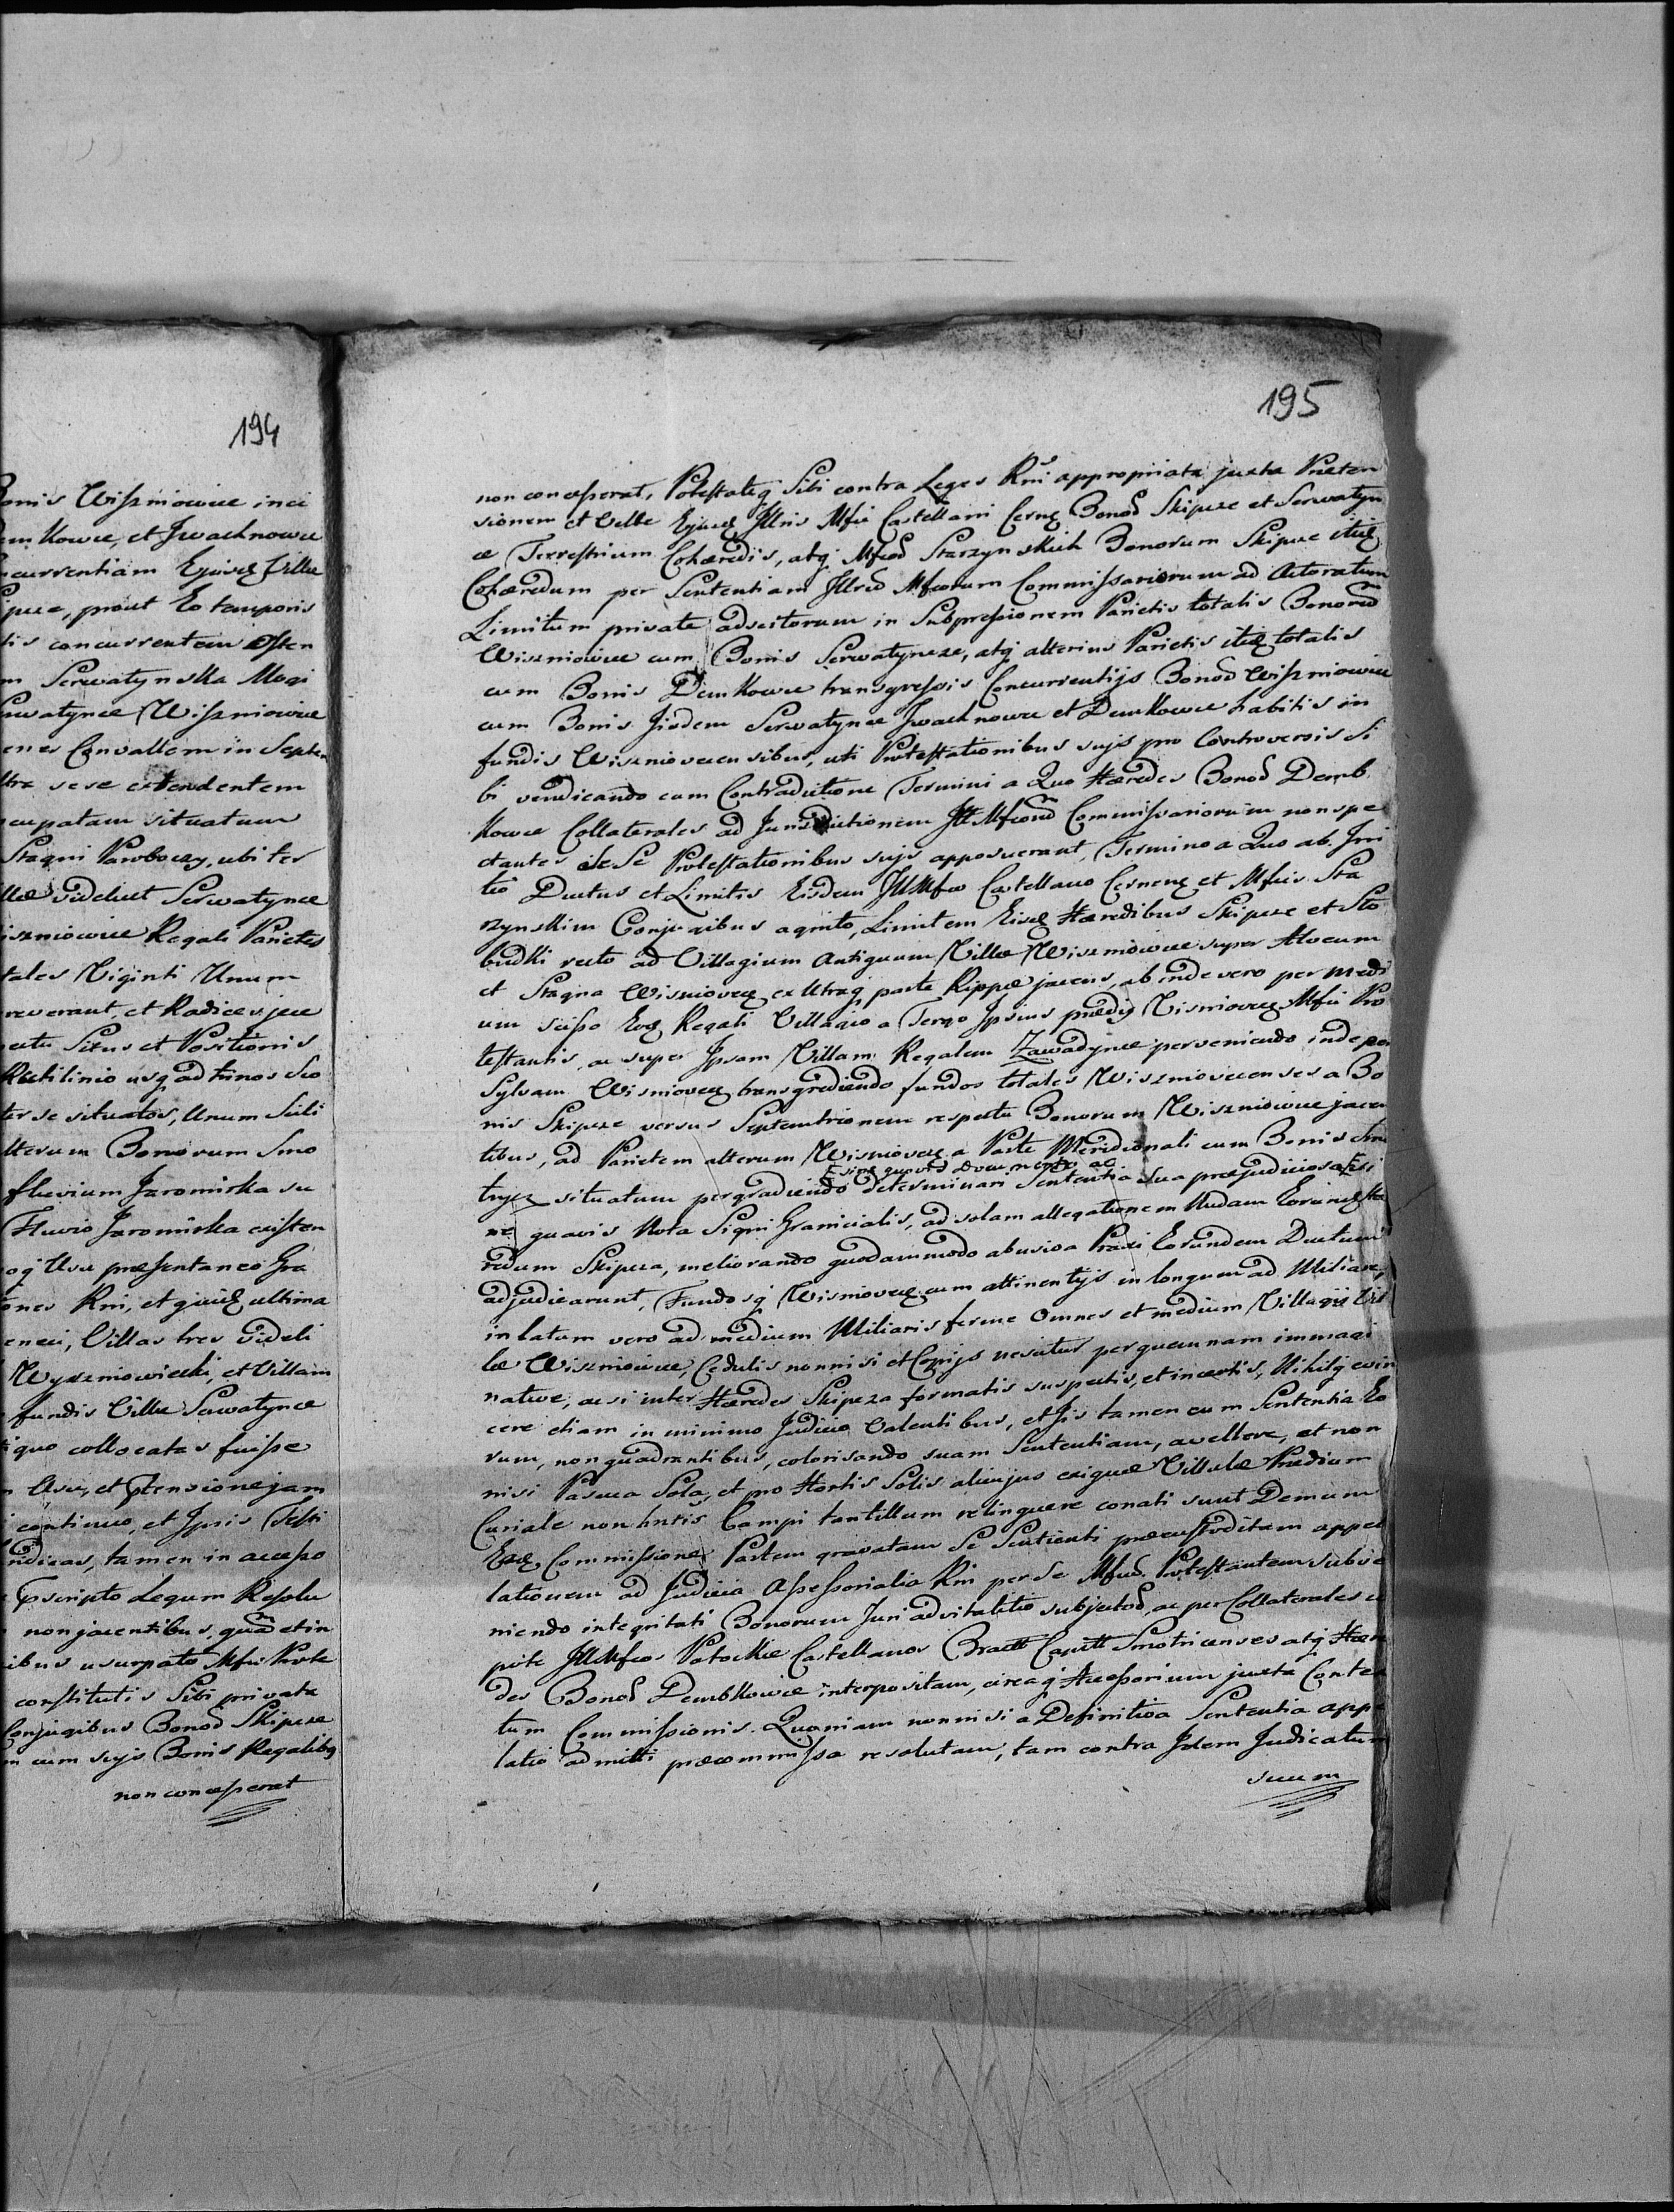 194
onis Wiszniowice inci
em Kowce, et Jwachnowce
ncurrentiam Ejusq Villa
ipcze, prout Eo temporis
lis concurrentem osten
m Serwatynska Magi
Serwatynce Wiszniowice
enes Convallem in Septen
ltra sese extendentem
cupatam situatum
Stagni Paroboczy, ubi ter
llae videlicet Serwatynce
iszniowice Regali Parietes
tales Viginti Unum
reverant, et Radice ejee
ectu Situs et Positionis
Rectilinio usq ad trinos Sco
ter se situatos, Unum Scili
lterum Bonorum Smo
fluvium Jaromirka su
Fluvio Jaromirka existen
oq Usu praesentaneo Gra
ones Rni, et quidq ultima
eneci, Villas tres videli
Wyszniowiecki, et Villam
fundis Villae Serwatynce
tiquo collocatas fuisse
Usu, et ptensione jam
continuo, et Ipsis Testi
ridicas, tamen in accesso
pscripto Legum Regalu
non jacentibus, quam etin
ibus usurpato Mfci Prote
constitutis Sibi privata
Conjugibus Bonod Skipcze
m cum sujs Bonis Regalibq
non concesserat
195
non concesserat, Potestateq Sibi contra Leges Rni appropriata juxta Praeten
sionem et Velle Ejusq Jllris Mfci Castellani Cernq Bonod Skipcze et Serwatyn
ce Terrestrium Cohaeredis, atq Mfcod Starzynskich Bonorum Skipcze itidq
Cohaeredum per Sententiam Jllred Mfcorum Commissariorum ad Actoratum
Limitum private adscitorum in Subpressionem Parietis totalis Bonored
Wiszniowice cum Bonis Serwatyncze, atq alterius Parietis itidq totalis
cum Bonis Demkowce transgressis Concurrentijs Bonod Wiszniowice
cum Bonis Jisdem Serwatynce Jwachnowce et Demkowce habitis in
fundis Wiszniovecensibus, uti Protestationibus sujs pro Controversis Si
bi vendicando cum Contradictione Termini a Quo Haeredes Bonod Demb
kowce Collaterales ad Jurisdictionem Jll Mfcord Commissariorum non spe
ctantes de Se Protestationibus sujs apposuerant, Termino a Quo ab Jni
tio Ductus et Limitis Eisdem Jll Mfco Castellano Cernenq et Mfcis Sta
rzynskim Conjugibus agnito, Limitem Eisq Haeredibus Skipcze et Slo
budki recto ad Villagium Antiquum Villae Wiszniowice super Alveum
et Stagna Wisniovecq ex Utraq parte Rippae jacens, ab inde vero per medi
um scisso Eoq Regali Villagio a Tergo Ipsius praedij Visniovecq Mfci Pro
testantis, ac super Ipsam Villam Regalem Zawadynce perveniendo inde per
Sylvam Wisniovecq transgrediendo fundos totales Wiszniovecenses a Bo
nis Skipcze versus Septemtrionem respectu Bonorum Wiszniowice jacen
tibus, ad Parietem alterum Wisniovecq a Parte Meridionali cum Bonis Smo
sine quovis documento ac
trycz situatum pergradiendo determinari Sententia sua praejudiciosa Si
ne quavis Nota Signi Granicialis, ad solam allegationem Nudam Eorumq Hae
redum Skipcza, meliorando quodammodo abusiva Praxi Eorundem Ductum
adjudicarunt, Fundosq Wisniovecq cum attinentijs in longum ad Miliare,
in latum vero ad medium Miliaris ferme Omnes et medium Villagij Vil
lae Wiszniowice, Cedulis nonnisi et Copijs nescitur per quemnam immagi
native, acsi inter Haeredes Skipcza formatis suspectis, et incertis, Nihilq evin
cere etiam in minimo Judicio Valentibus, et Jis tamen cum Sententia Eo
rum, non quadrantibus, colorisando suam Sententiam, avellere, et non
nisi Pascua Sola, et pro Hortis Solis alicujus exiguae Villulae Praedium
Curiale non hntis Campi tantillum relinquere conati sunt Demum
Eadq Commissione Partem gravatam Se Sentienti praecustoditam appel
lationem ad Judicia Assessorialia Rni per Se Mfcud Protestantem subve
niendo integritati Bonorum Juri advitalitio subjectod, ac per Collaterales u
pote Jll Mfcos Potockie Castellanos Braclt Capitt Smotricenses atq Haere
des Bonod Dembkowce interpositam, circaq Accessorium juxta Conten
tum Commissionis. Quoniam nonnisi a Definitiva Sententia appe
latio admitti praecommissa resolutam, tam contra Idem Judicatum
suum